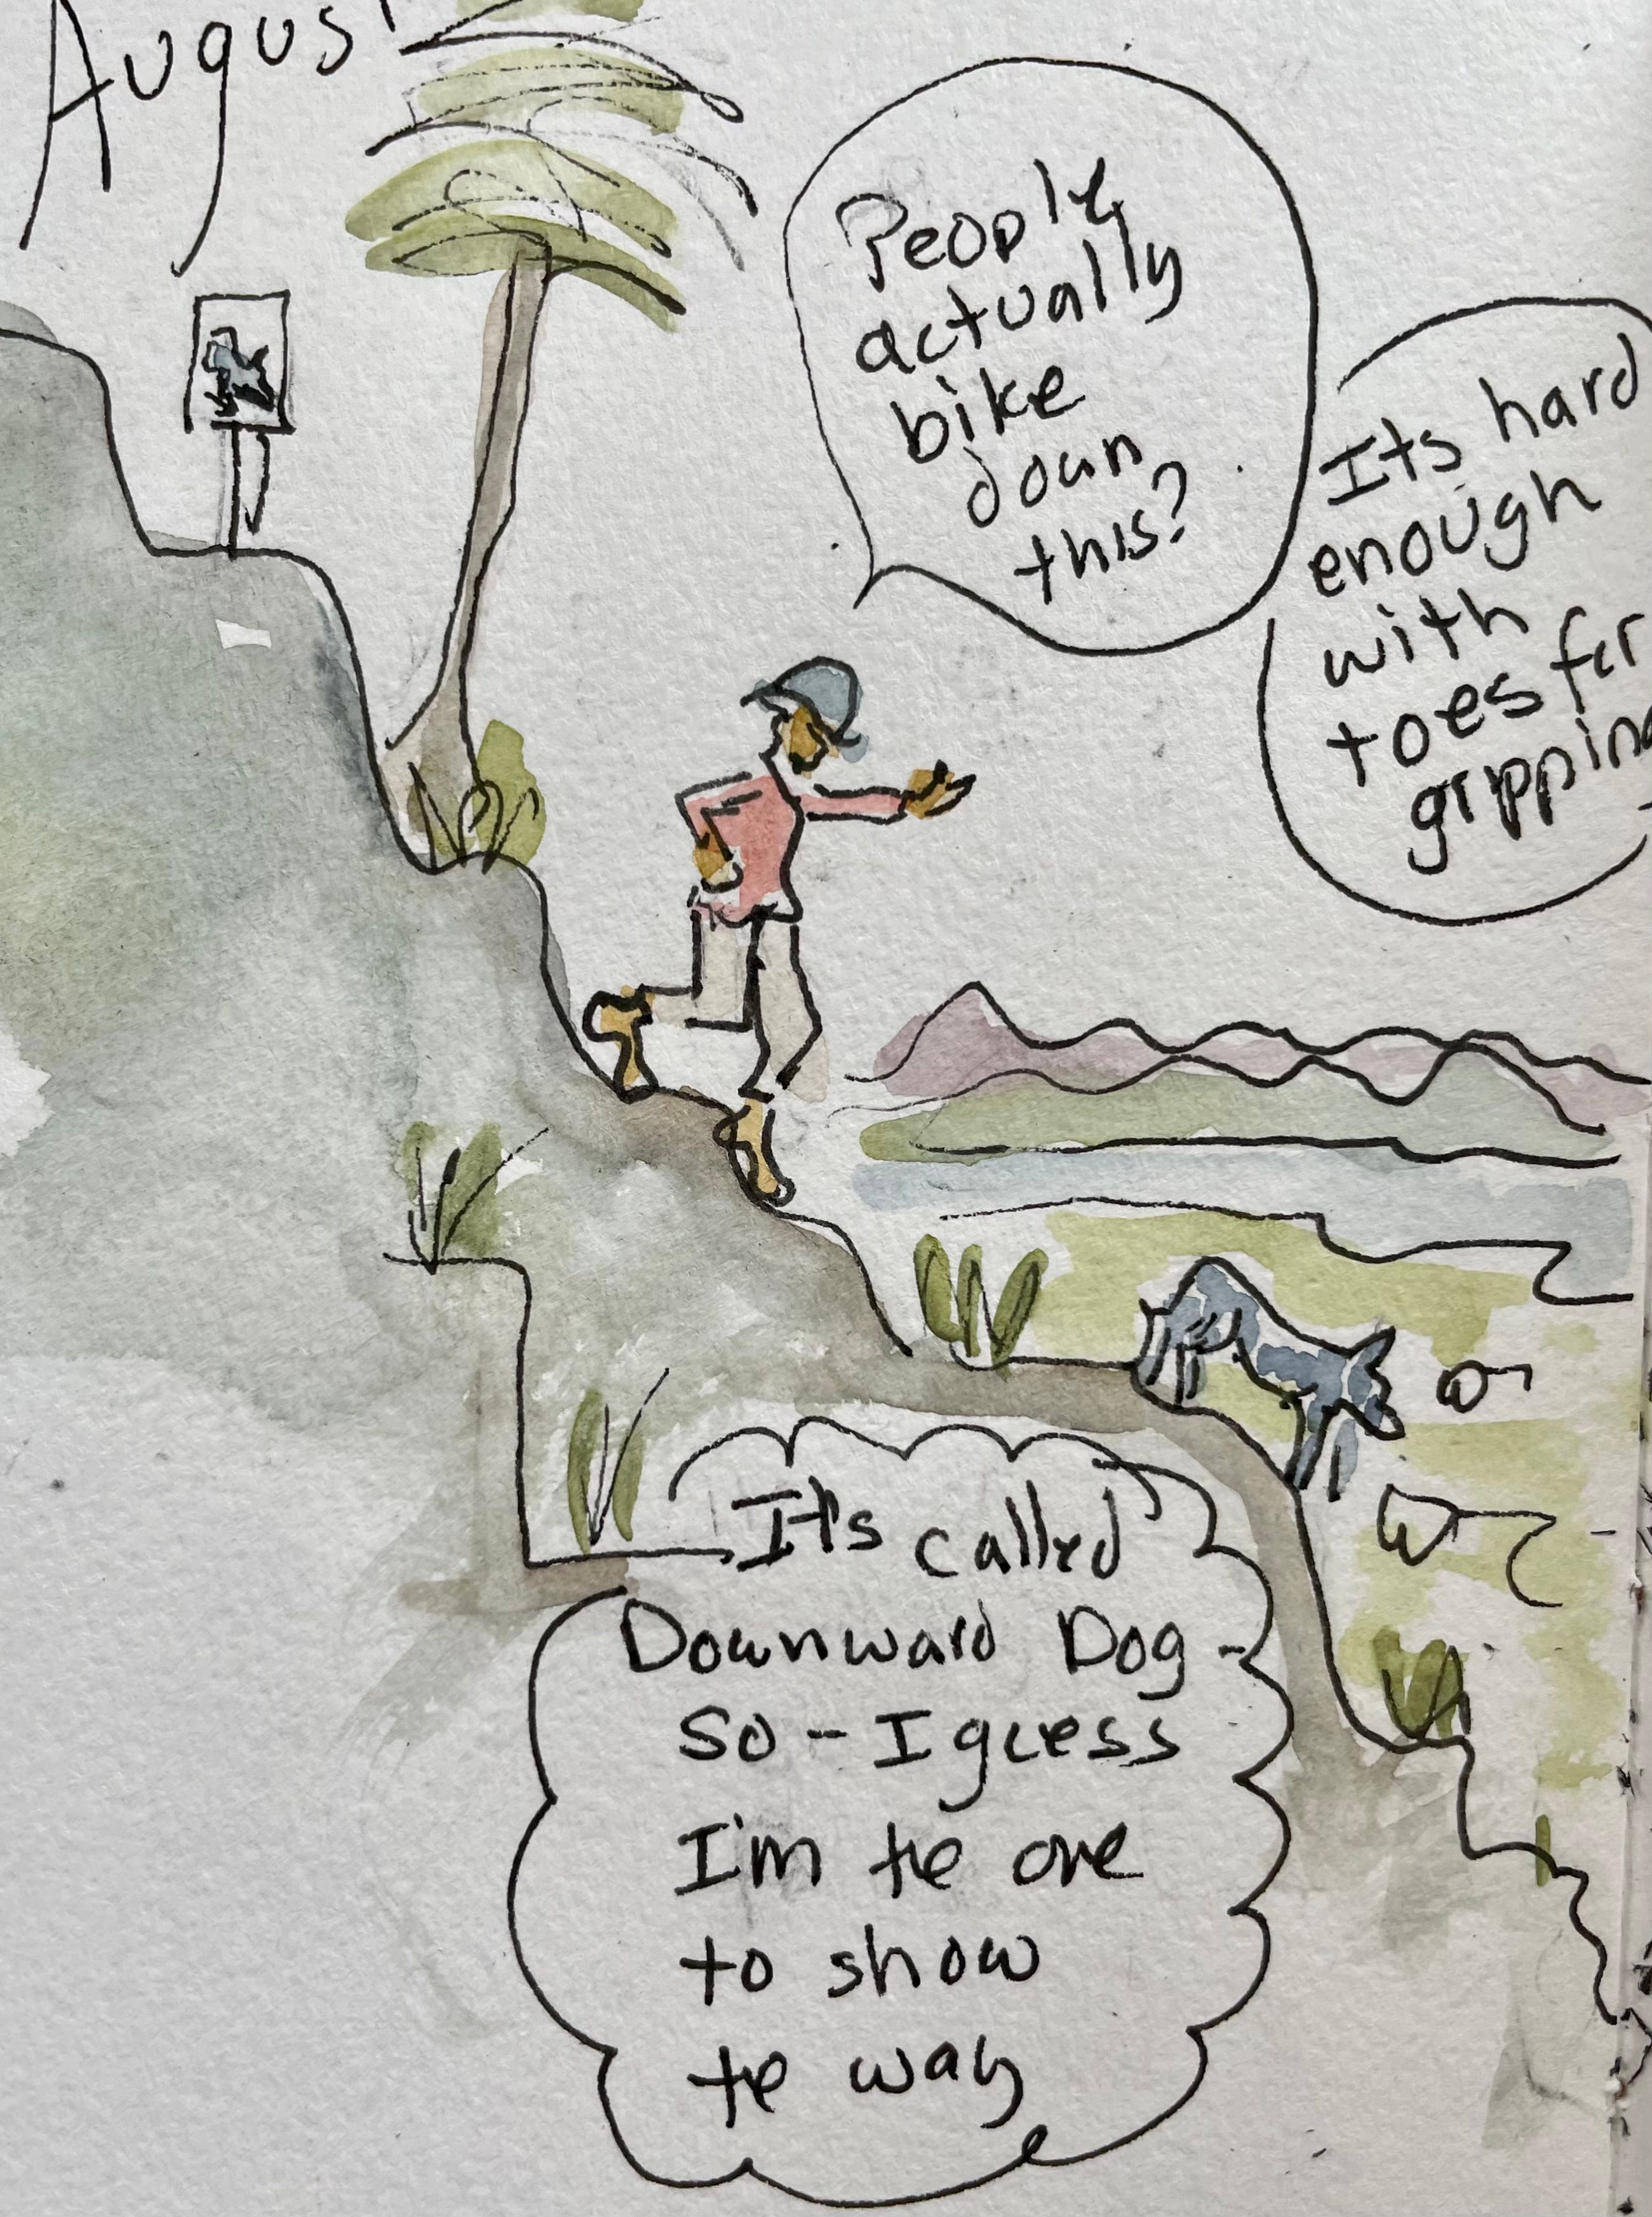 August
People
actually
bike
down
this?
Its hard
enough
with
toes for
gripping
It's called
Downward Dog -
So - I guess
I'm the one
to show
the way